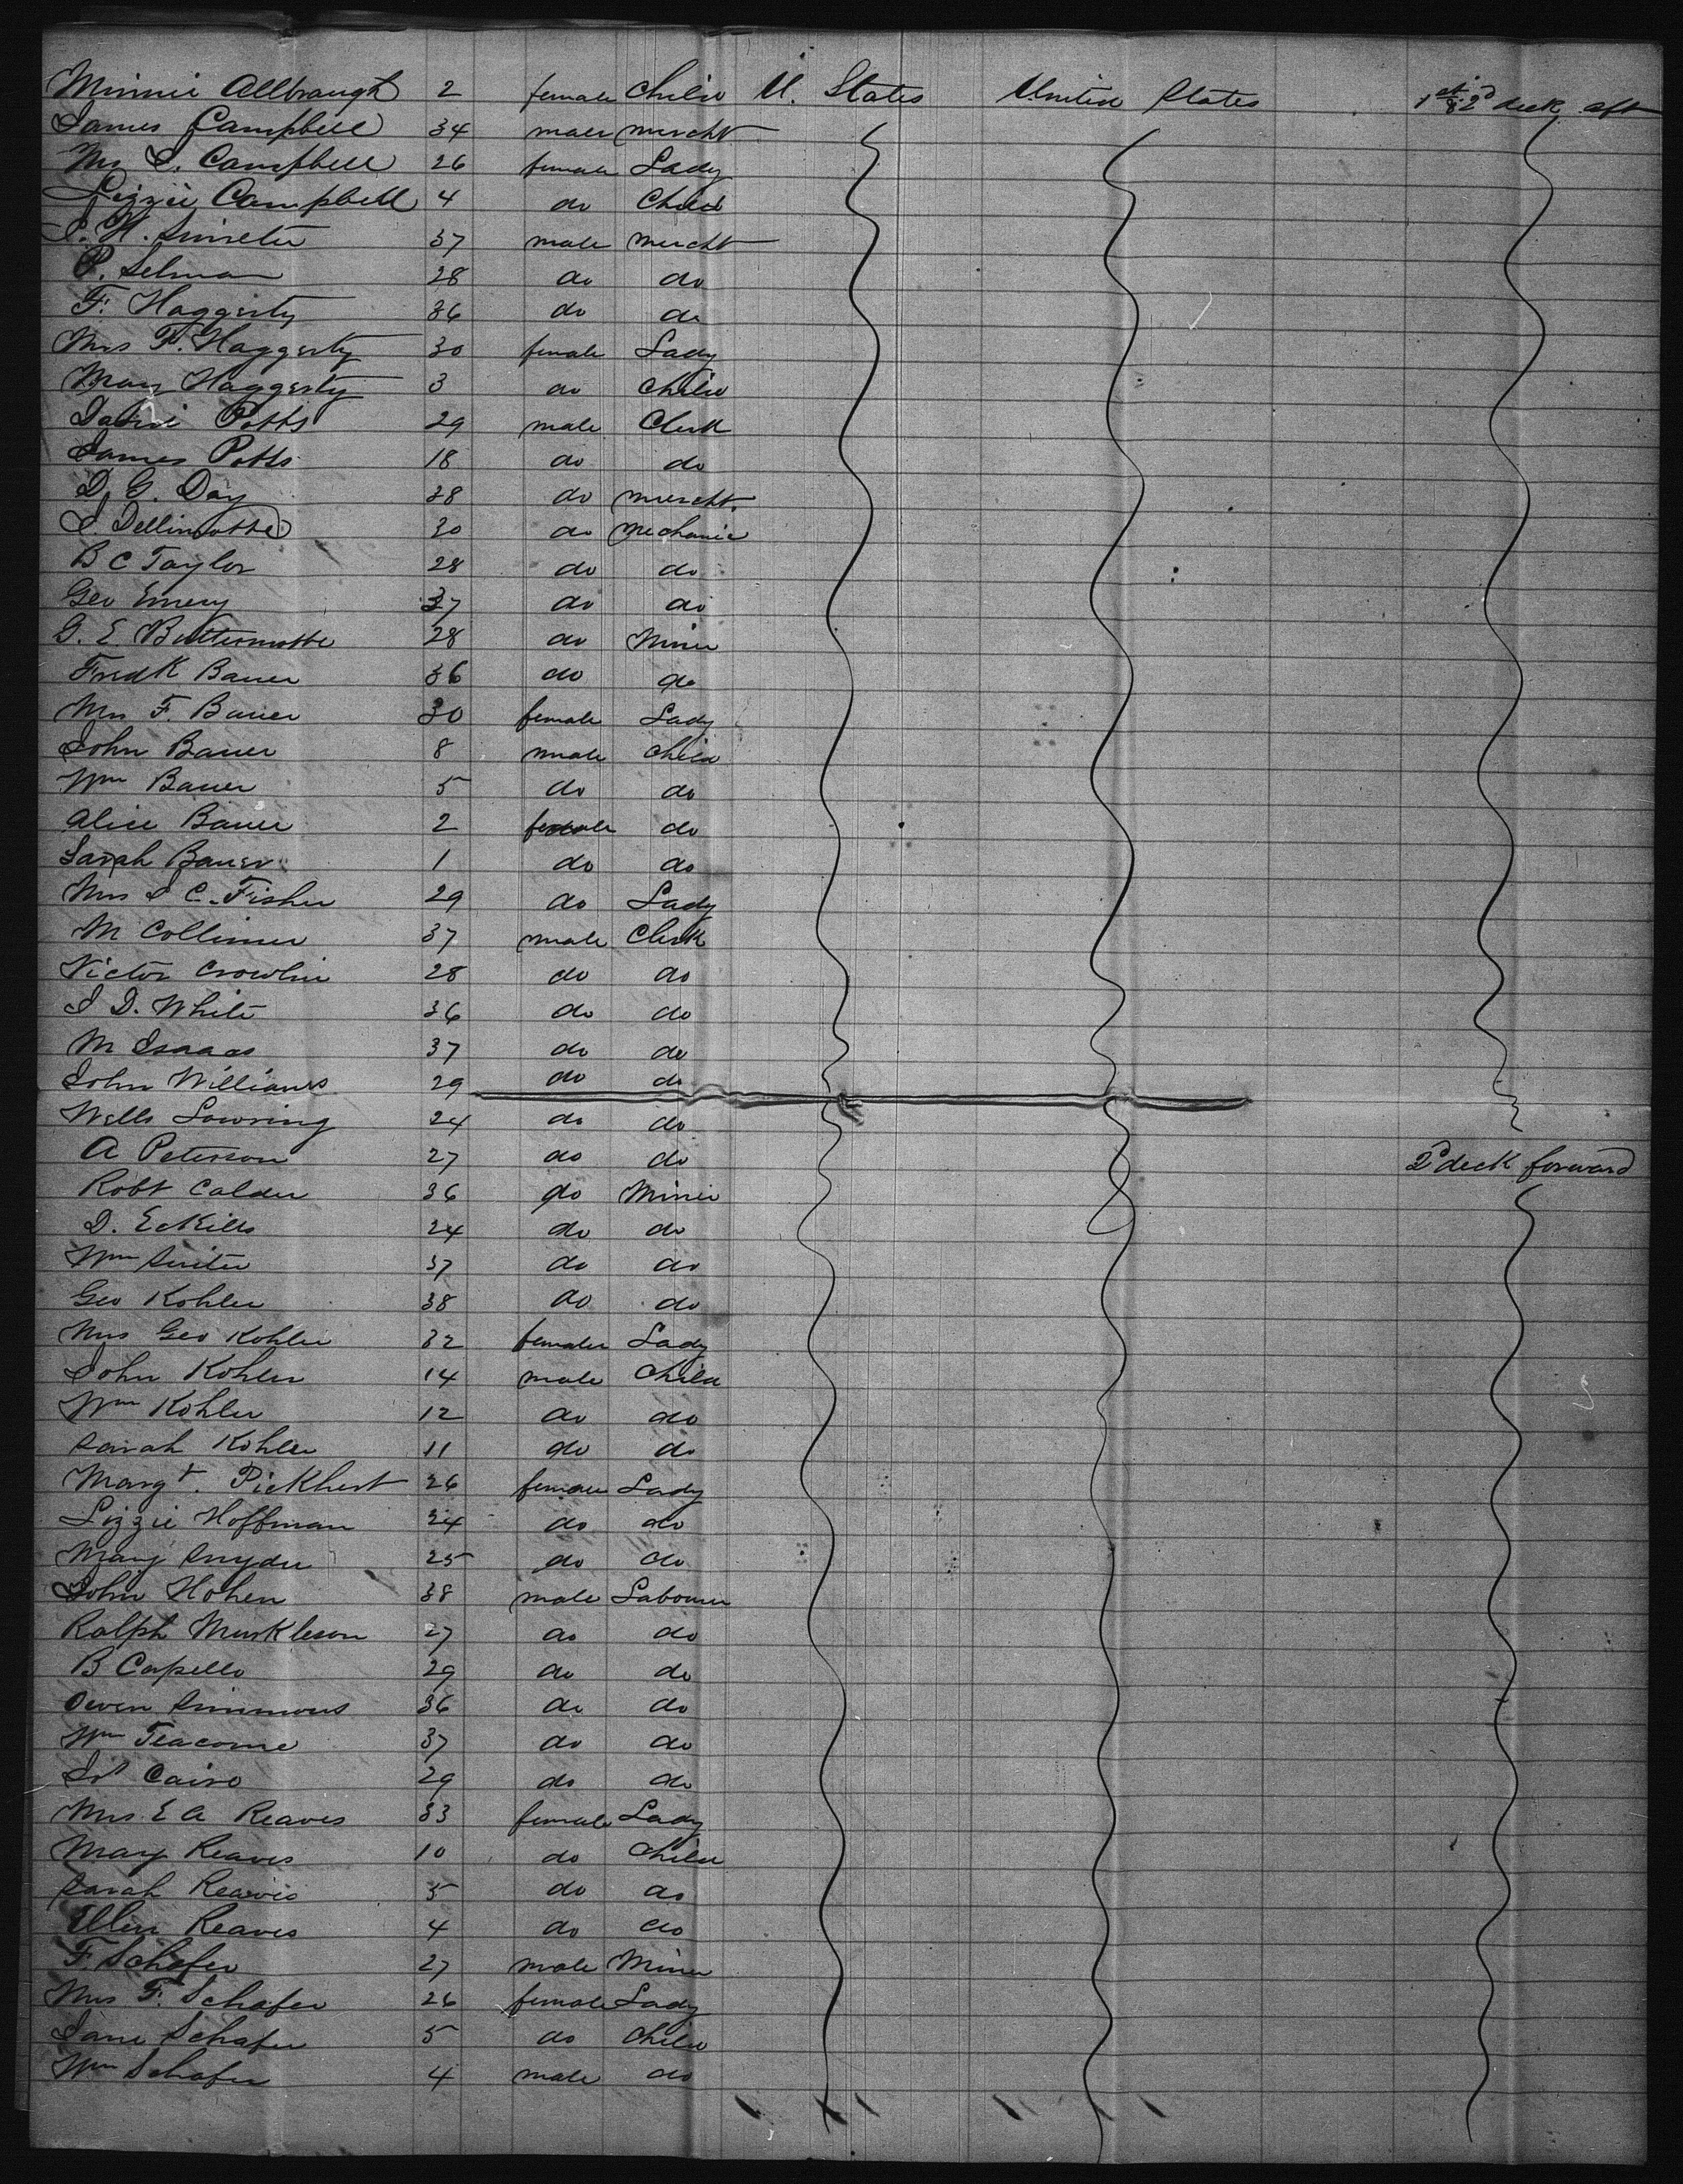 Minnie Allbraugh 2 female Child U. States United States 1st & 2d deck aft
James Campbell 34 male mercht
Mrs J. Campbell 26 female Lady
Lizzie Campbell 4 do Child
37 male mercht
P. Selman 28 do do
F. Haggerty 36 do do
Mrs F. Haggerty 30 female Lady
Mary Haggerty 3 do Child
David Potts 29 male Clerk
James Potts 18 do do
D. G. Day 38 do mercht.
30 do Mechanic
B C Taylor 28 do do
Geo Emery 37 do do
G. E Buttermotte 28 do Miner
Fredk Bauer 36 do do
Mrs F. Bauer 30 female Lady
John Bauer 8 male child
Wm Bauer 5 do do
Alice Bauer 2 female do
Sarah Bauer 1 do do
Mrs J C. Fisher 29 do Lady
M Collimer 37 male Clerk
Victor Crowlin 28 do do
J D. White 36 do do
M Isaacs 37 do do
John Williams 29 do do
Wells Lowring 24 do do
A Peterson 27 do do 2d deck forward
Robt Calder 36 do Miner
D. Eckills 24 do do
Wm 37 do do
Geo Kohler 38 do do
Mrs Geo Kohler 32 female Lady
John Kohler 14 male Child
Wm Kohler 12 do do
Sarah Kohler 11 do do
Margt. Pickhert 26 female Lady
Lizzie Hoffman 24 do do
Mary Snyder 25 do do
John Hohen 38 male Labourer
Ralph Muskleson 27 do do
B Capello 29 do do
Owen Simmons 36 do do
Wm Teacome 37 do do
Js Cairo 29 do do
Mrs E A Reaves 33 female Lady
Mary Reaves 10 do Child
Sarah Reaves 5 do do
Ellen Reaves 4 do do
F. Schafer 27 male Miner
Mrs F. Schafer 26 female Lady
Jane Schafer 5 do Child
Wm Schafer 4 male do